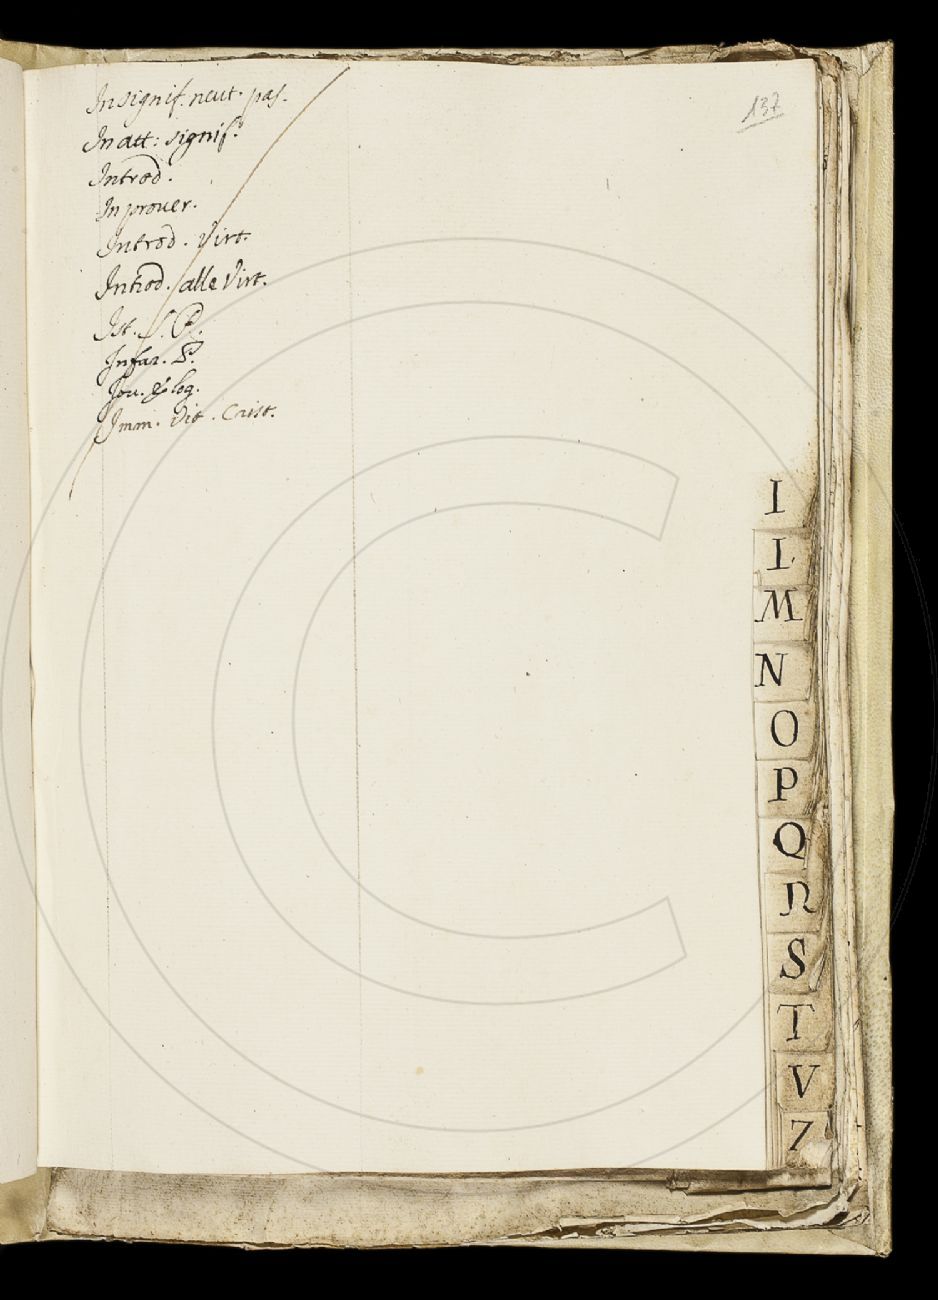 In signif. neut. pas.
In att: signif.e
Introd.
In prouer.
Introd. Virt.
Introd. alle Virt.
Ist. S. P.
Infar. S.
Iou. Eclog.
Imm. Vit. Crist.
137
I
L
M
N
O
P
Q
R
S
T
V
Z